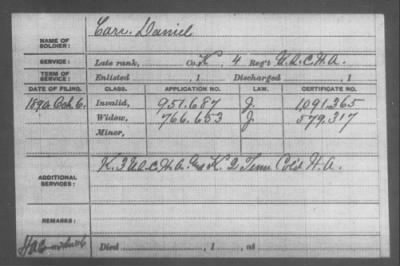 NAME OF SOLDIER: Carr, Daniel
SERVICE: Late rank, Co. K, 4 Reg't U.S.C.H.A.
TERM OF SERVICE: Enlisted , 1 Discharged , 1
DATE OF FILING. CLASS. APPLICATION NO. LAW. CERTIFICATE NO.
1890 Oct 6. Invalid, 951.687 J. 1,091.365
Widow, 766.653 J. 579.317
Minor,
ADDITIONAL SERVICES: K. 3 U.S.C.H.A. K. 2 Tenn Cold H.A.
REMARKS:
Died , 1 , at